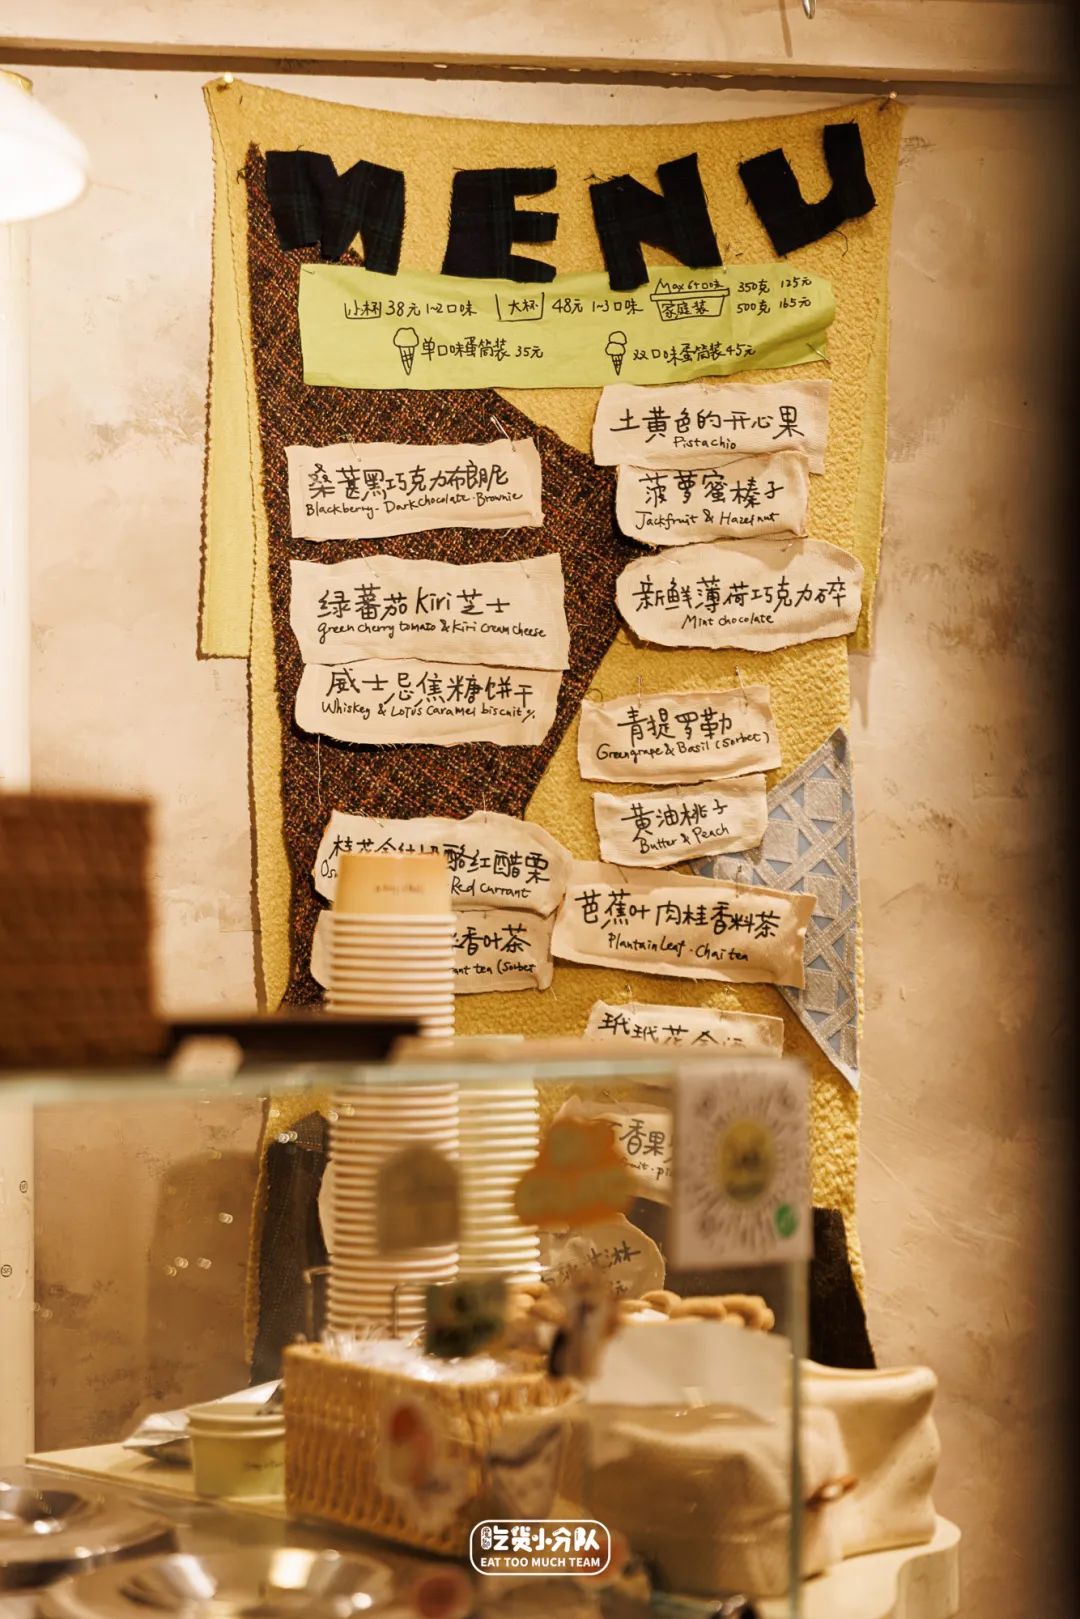 MENU
小杯 38元 1~2口味
大杯 48元 1~3口味
Max 6个口味
家庭装
350克 125元
500克 165元
单口味蛋筒装 35元
双口味蛋筒装 45元
土黄色的开心果
Pistachio
桑葚黑巧克力布朗尼
Blackberry-Darkchocolate-Brownie
菠萝蜜榛子
Jackfruit & Hazelnut
绿蕃茄 Kiri 芝士
green cherry tomato & Kiri Cream cheese
新鲜薄荷巧克力碎
Mint chocolate
威士忌焦糖饼干
Whiskey & Lotus Caramel biscuit
青提罗勒
Greengrape & Basil (Sorbet)
黄油桃子
Butter & Peach
桂花
酪红醋栗
Red Currant
芭蕉叶肉桂香料茶
Plantain Leaf · Chai tea
香叶茶
tea (Sorbet
玳玳花
香果
淋
吃货小分队
EAT TOO MUCH TEAM